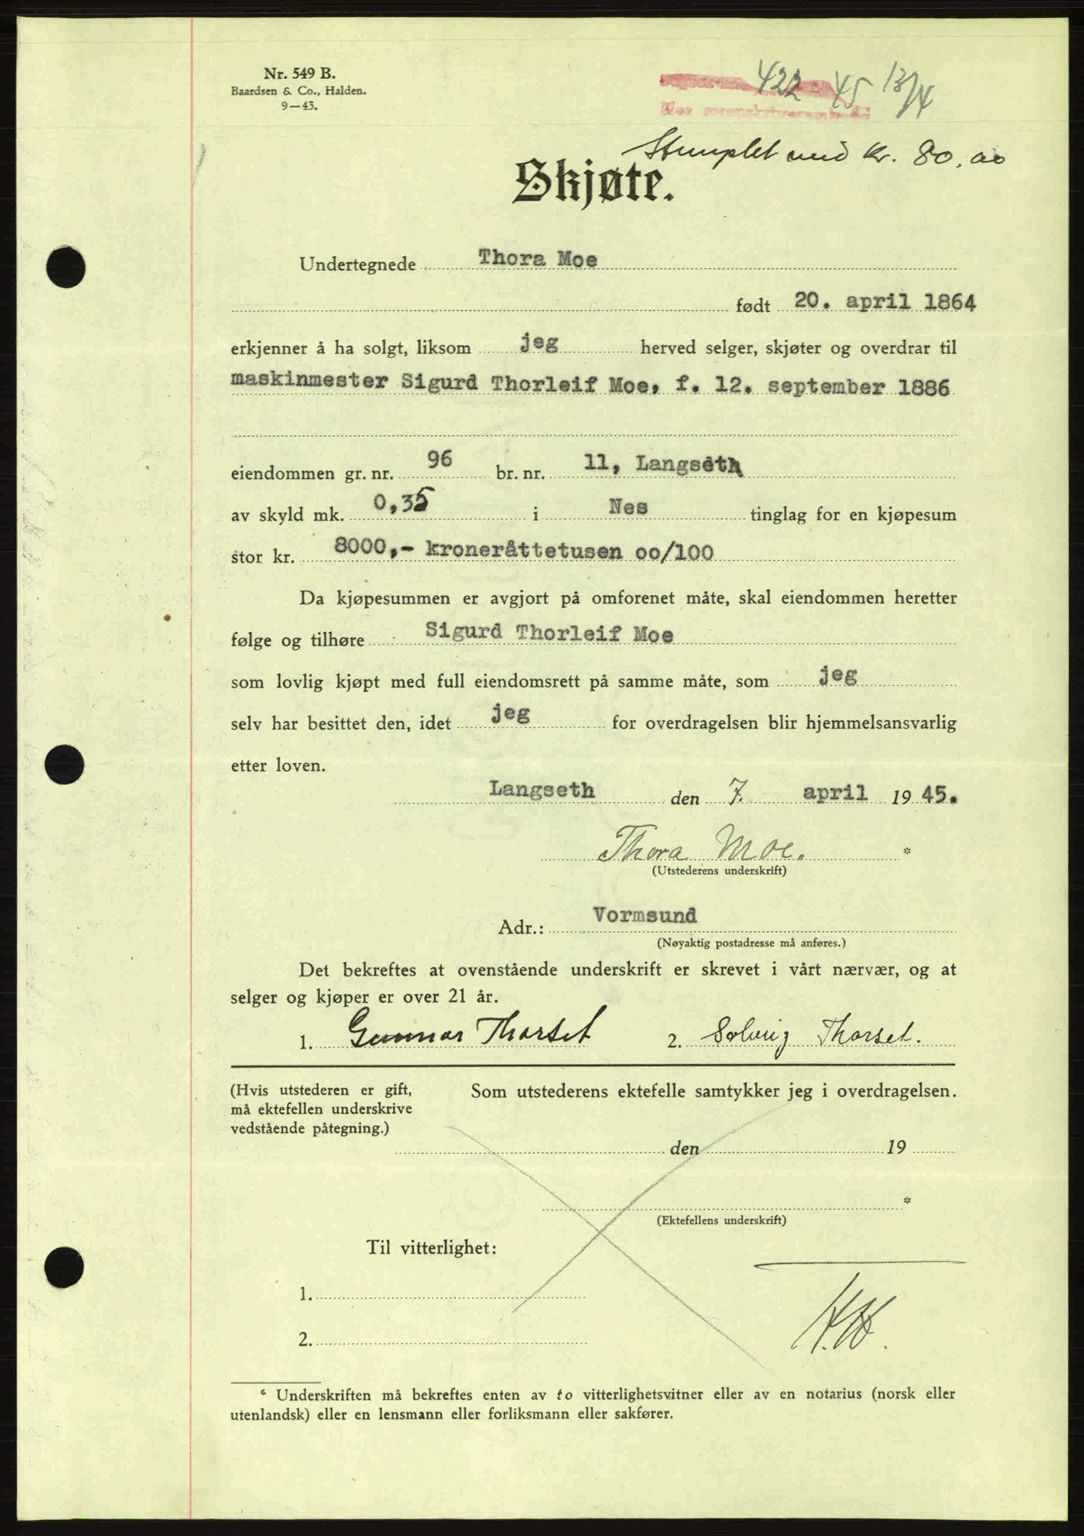 Nr. 549 B.
Baardsen & Co., Halden.
9—43.
422 45 13/4
Stemplet med kr. 80.oo
Skjøte.
Undertegnede Thora Moe
født 20. april 1864
erkjenner å ha solgt, liksom jeg herved selger, skjøter og overdrar til
maskinmester Sigurd Thorleif Moe, f. 12. september 1886
eiendommen gr. nr. 96 br. nr. 11, Langseth
av skyld mk. 0,35 i Nes tinglag for en kjøpesum
stor kr. 8000,- kroneråttetusen oo/100
Da kjøpesummen er avgjort på omforenet måte, skal eiendommen heretter
følge og tilhøre Sigurd Thorleif Moe
som lovlig kjøpt med full eiendomsrett på samme måte, som jeg
selv har besittet den, idet jeg for overdragelsen blir hjemmelsansvarlig
etter loven.
Langseth den 7. april 1945.
Thora Moe. *
(Utstederens underskrift)
Adr.: Vormsund
(Nøyaktig postadresse må anføres.)
Det bekreftes at ovenstående underskrift er skrevet i vårt nærvær, og at
selger og kjøper er over 21 år.
1. Gunnar Thorset 2. Solveig Thorset.
(Hvis utstederen er gift, Som utstederens ektefelle samtykker jeg i overdragelsen.
må ektefellen underskrive
vedstående påtegning.)
den 19
*
(Ektefellens underskrift)
Til vitterlighet:
1.
2.
* Underskriften må bekreftes enten av to vitterlighetsvitner eller av en notarius (norsk eller
utenlandsk) eller en lensmann eller forliksmann eller sakfører.